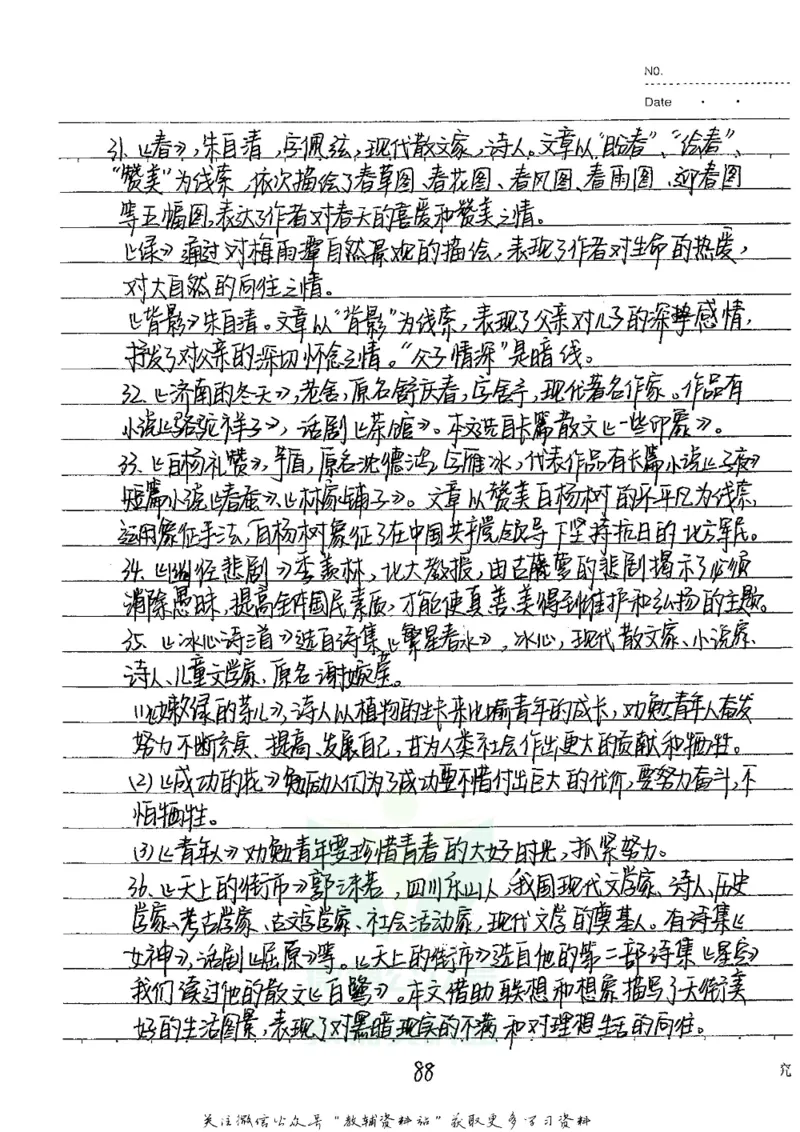 No.
Date
31.《春》,朱自清,字佩弦,现代散文家,诗人。文章以“盼春”、“绘春”、
“赞美”为线索,依次描绘了春草图、春花图、春风图、春雨图、迎春图
等五幅图,表达了作者对春天的喜爱和赞美之情。
《绿》通过对梅雨潭自然景观的描绘,表现了作者对生命的热爱,
对大自然的向往之情。
《背影》朱自清。文章以“背影”为线索,表现了父亲对儿子的深挚感情,
抒发了对父亲的深切怀念之情。“父子情深”是暗线。
32.《济南的冬天》,老舍,原名舒庆春,字舍予,现代著名作家。作品有
小说《骆驼祥子》,话剧《茶馆》。本文选自长篇散文《一些印象》。
33.《白杨礼赞》,茅盾,原名沈德鸿,字雁冰,代表作品有长篇小说《子夜》
短篇小说《春蚕》、《林家铺子》。文章以赞美白杨树的不平凡为线索,
运用象征手法,白杨树象征了在中国共产党领导下坚持抗日的北方军民。
34.《幽径悲剧》季羡林,北大教授,由古藤萝的悲剧揭示了必须
消除愚昧,提高全体国民素质,才能使真善美得到维护和弘扬的主题。
35.《冰心诗三首》选自诗集《繁星春水》,冰心,现代散文家、小说家、
诗人、儿童文学家、原名谢婉莹。
(1)《嫩绿的芽儿》,诗人以植物的生长来比喻青年的成长,劝勉青年人奋发
努力不断充实、提高、发展自己,甘为人类社会作出更大的贡献和牺牲。
(2)《成功的花》勉励人们为了成功要不惜付出巨大的代价,要努力奋斗,不
怕牺牲。
(3)《青年人》劝勉青年要珍惜青春的大好时光,抓紧努力。
36.《天上的街市》郭沫若,四川乐山人,我国现代文学家、诗人、历史
学家、考古学家、古文字学家、社会活动家,现代文学的奠基人。有诗集《
女神》,话剧《屈原》等。《天上的街市》选自他的第二部诗集《星空》
我们读过他的散文《白鹭》。本文借助联想和想象描写了天街美
好的生活图景,表现了对黑暗现实的不满和对理想生活的向往。
88
究
关注微信公众号“教辅资料站”获取更多学习资料